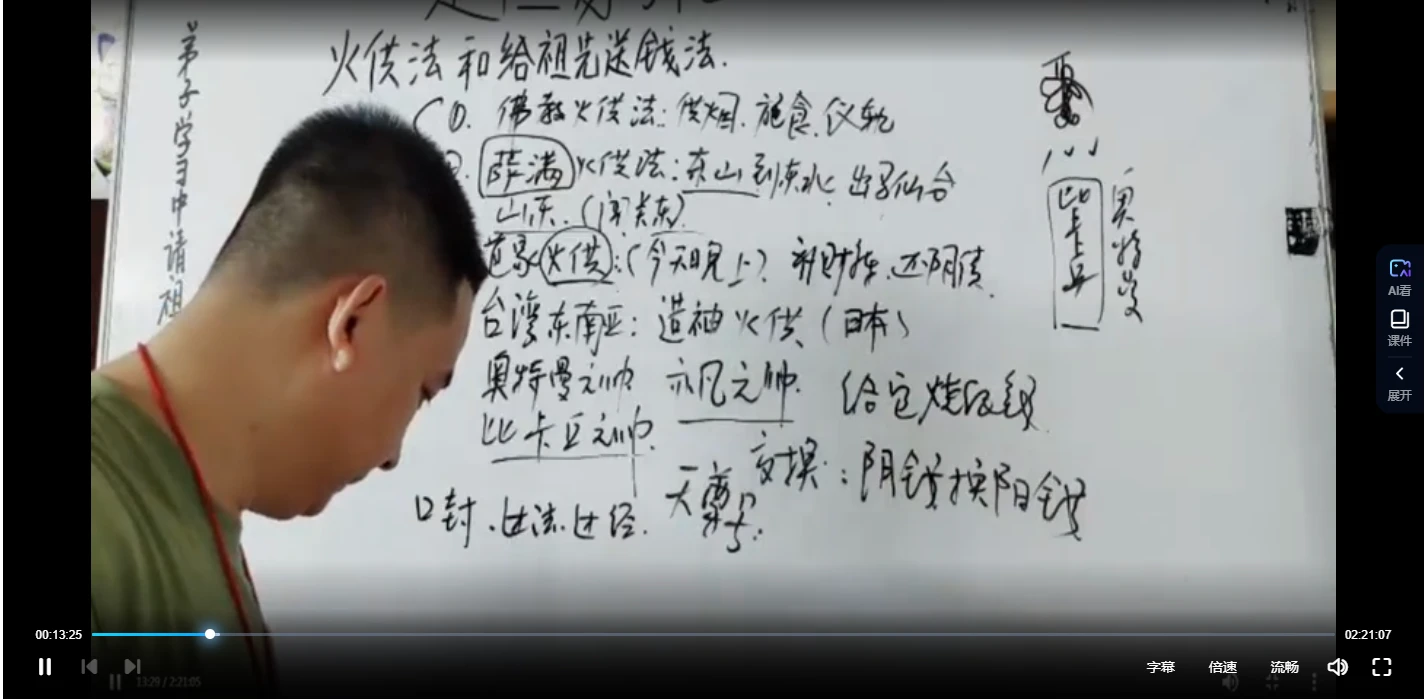 弟子学习申请祖
火供法和给祖先送钱法.
①. 佛教火供法: 供烟. 施食. 仪轨
②. 萨满火供法: 东山到东水 出马仙台
山东. (闯关东)
道家火供: (今天晚上) 补财库. 还阴债.
台湾东南亚: 造神火供 (日本)
奥特曼元帅 亦凡元帅. 给它烧纸钱
比卡丘元帅.
交换: 阴钱换阳钱
口封. 过法. 过经.
比卡丘
奥特曼
AI看
课件
展开
00:13:25
02:21:07
字幕
倍速
流畅
13:29 / 2:21:05